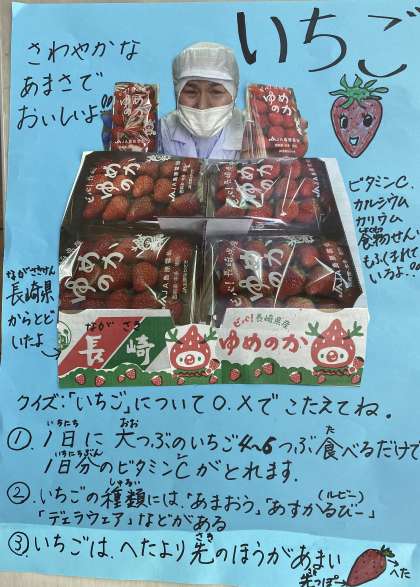 いちご
さわやかな
あまさで
おいしいよ!!
ゆめのか
ゆめのか
JA長崎せいひ
ゆめのか
ゆめのか
ゆめのか
ゆめのか
ビタミンC
カルシウム
カリウム
食物せんい
しょくもつ
もふくまれて
いるよ!!
ながさきけん
長崎県
からとど
いたよ
ながさき
長崎
ぜっぴん!長崎県産
ゆめのか
クイズ:「いちご」について○.×でこたえてね。
①.1日に大つぶのいちご4~6つぶ食べるだけで
いちにち おお た
1日分のビタミンCがとれます.
いちにちぶん シー
②.いちごの種類には、「あまおう」「あすかるびー」
しゅるい (ルビー)
「デラウェア」などがある
③.いちごは、へたより先のほうがあまい
さき
へた
先っぽ
さき